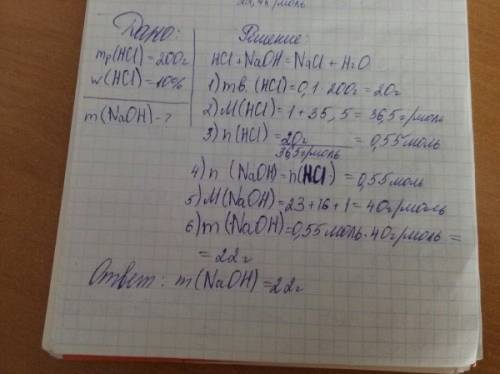 22,4 г/моль
Дано:
mр(HCl)=200г
w(HCl)=10%
m(NaOH)-?
Решение:
HCl+NaOH=NaCl+H2O
1) mв.(HCl)=0,1·200г=20г
2) M(HCl)=1+35,5=36,5г/моль
3) n(HCl)=20г/36,5г/моль=0,55моль
4) n(NaOH)=n(HCl)=0,55моль
5) M(NaOH)=23+16+1=40г/моль
6) m(NaOH)=0,55моль·40г/моль=
=22г
Ответ: m(NaOH)=22г